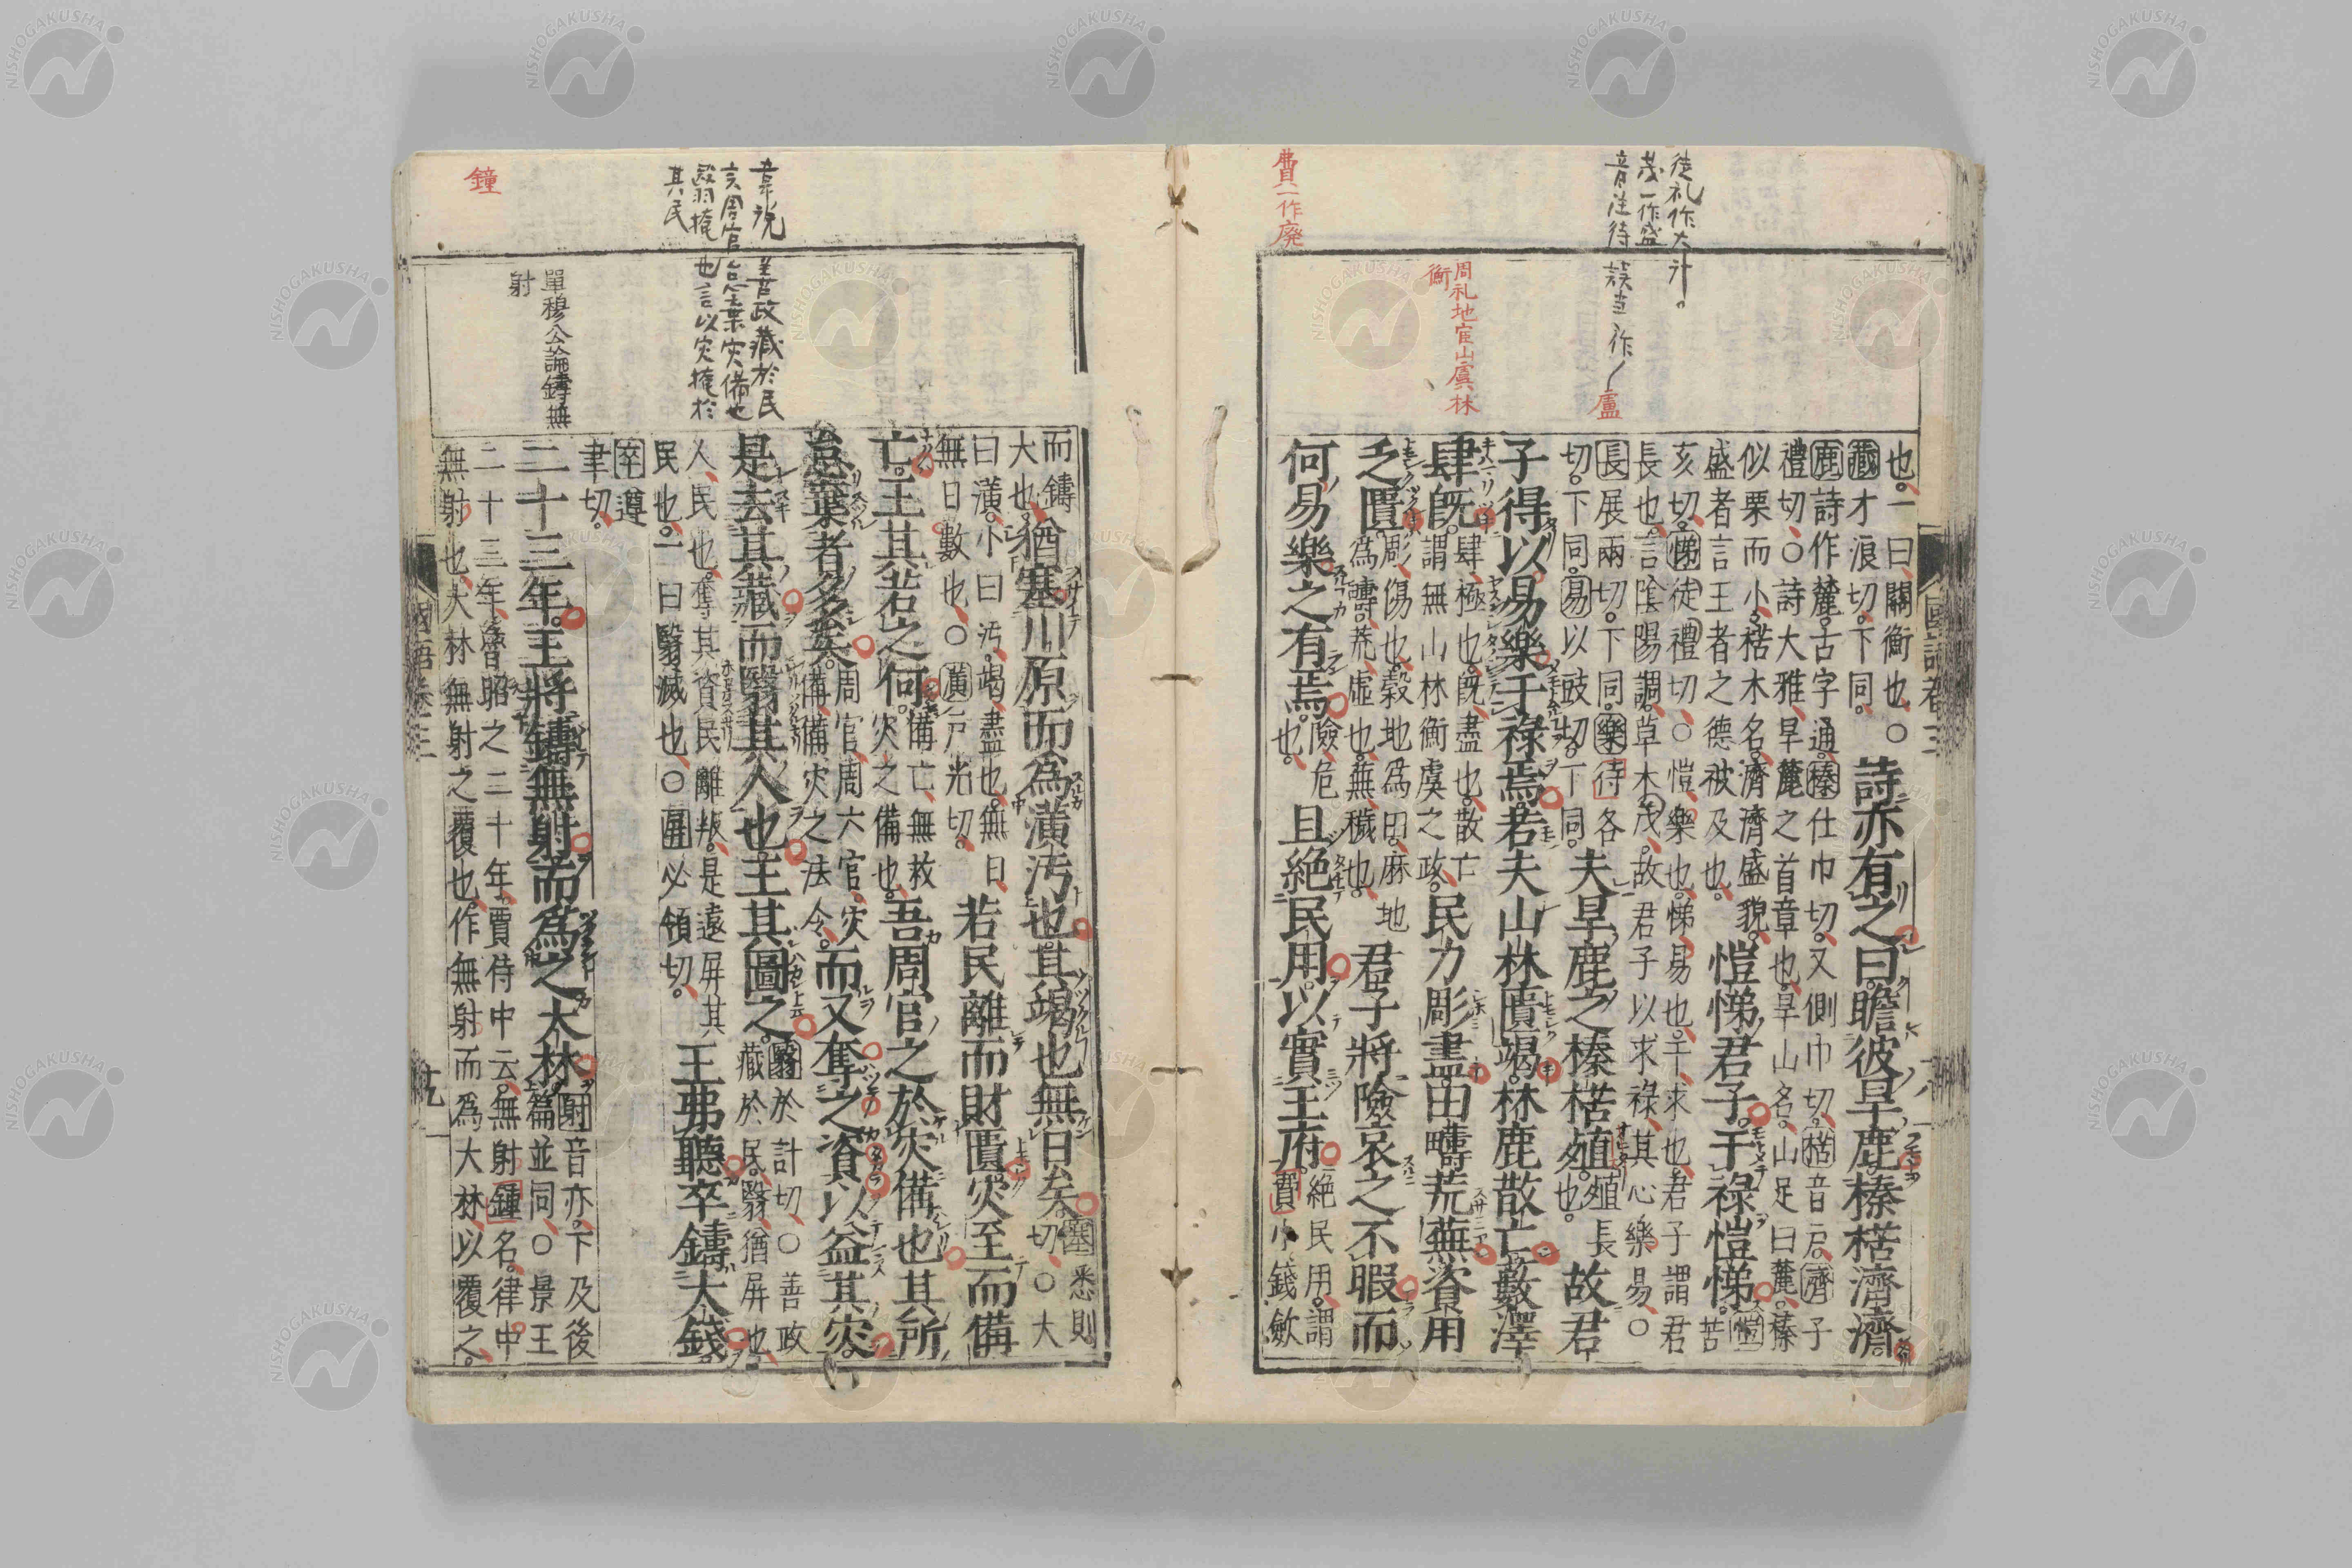 徒礼作大計。
茂一作盛
音注待誤当作
盧
周礼地官山虞林
衡
費一作廃
也。一曰、關衡也。○
藏才浪切。下同。
詩亦有之曰。瞻彼旱鹿。榛楛濟濟。
鹿詩作麓。古字通。榛仕巾切。又側巾切。楛音戸。濟子
禮切、○詩大雅、旱麓之首章也、旱山名。山足曰麓。榛
似栗而小、楛木名。濟濟盛貌、
盛者言王者之德被及也。
愷悌君子。干祿愷悌。
愷苦
亥切。悌徒禮切、○愷、樂也。悌、易也。干、求也、君子謂君
長也、言陰陽調。草木茂、故君子以求祿、其心樂易、○
長展兩切。下同。樂待各
切。下同。易以豉切。下同。
夫旱鹿之榛楛殖。
殖長
也。
故君
子得以易樂干祿焉。若夫山林匱竭。林鹿散亡。藪澤
肆既。
肆、極也。既、盡也。散亡
謂無山林衡虞之政。
民力彫盡。田疇荒蕪。資用
乏匱。
彫、傷也。穀地為田。麻地
為疇。荒、虛也。蕪、穢也。
君子將險哀之不暇。而
何易樂之有焉。
險、危
也。
且絶民用。以實王府。
絶民用。謂
費小錢斂
國語卷三
而鑄
大也、
猶塞川原而為潢汚也。其竭也無日矣。
塞悉則
切、○大
曰潢。小曰汚。竭、盡也。無日、
無日數也、○潢戸光切。
若民離而財匱。災至而備
亡。王其若之何。
備亡、無救
災之備也。
吾周官之於災備也。其所
怠棄者多矣。
周官、周六官、災
備、備災之法令。
而又奪之資。以益其災。
是去其藏。而翳其人也。王其圖之。
翳於計切、○善政
藏於民。翳、猶屏也。
人、民也。奪其資民離叛。是遠屏其
民也。一曰翳、滅也、○屏必領切。
王弗聽。卒鑄大錢。
卒遵
聿切。
二十三年。王將鑄無射。而為之大林。
射音亦、下及後
篇並同、○景王
二十三年、魯昭之二十年、賈侍中云、無射、鍾名。律中
無射也、大林無射之覆也、作無射而為大林、以覆之。
國語卷三
單穆公論鑄無
射
韋説善政藏於民
亥周官怠棄災備也
翳掩也言以災掩於
其民
鐘